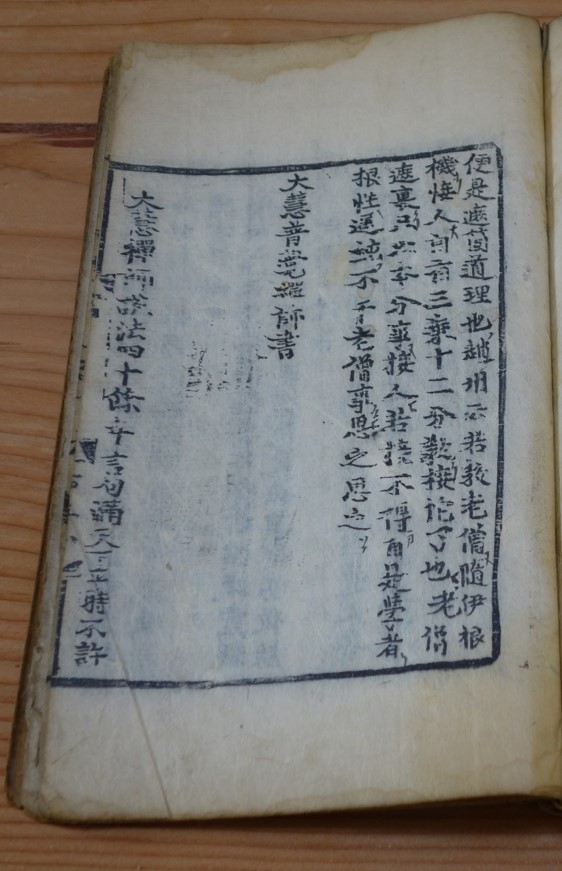 便是遮箇道理也趙州云若敎老僧隨伊根
機接人自有三乘十二分敎接他了也老僧
遮裏只以本分事接人若接不得自是學者
根性遲鈍不干老僧事思之思之
大慧普覺禪師書
大慧禪師說法四十餘年言句滿天下平時不許